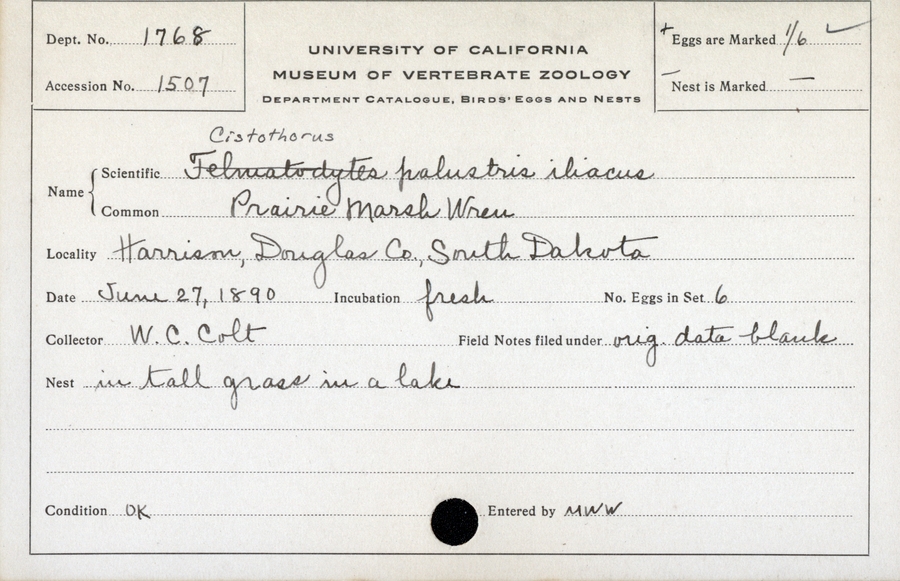 Dept. No. 1768
Accession No. 1507
UNIVERSITY OF CALIFORNIA
MUSEUM OF VERTEBRATE ZOOLOGY
DEPARTMENT CATALOGUE, BIRDS' EGGS AND NESTS
+ Eggs are Marked 1/6 ✓
— Nest is Marked —
Cistothorus
Name { Scientific Telmatodytes palustris iliacus
Common Prairie Marsh Wren
Locality Harrison, Douglas Co., South Dakota
Date June 27, 1890 Incubation fresh No. Eggs in Set 6
Collector W. C. Colt Field Notes filed under orig. data blank
Nest in tall grass in a lake
Condition OK Entered by MWW